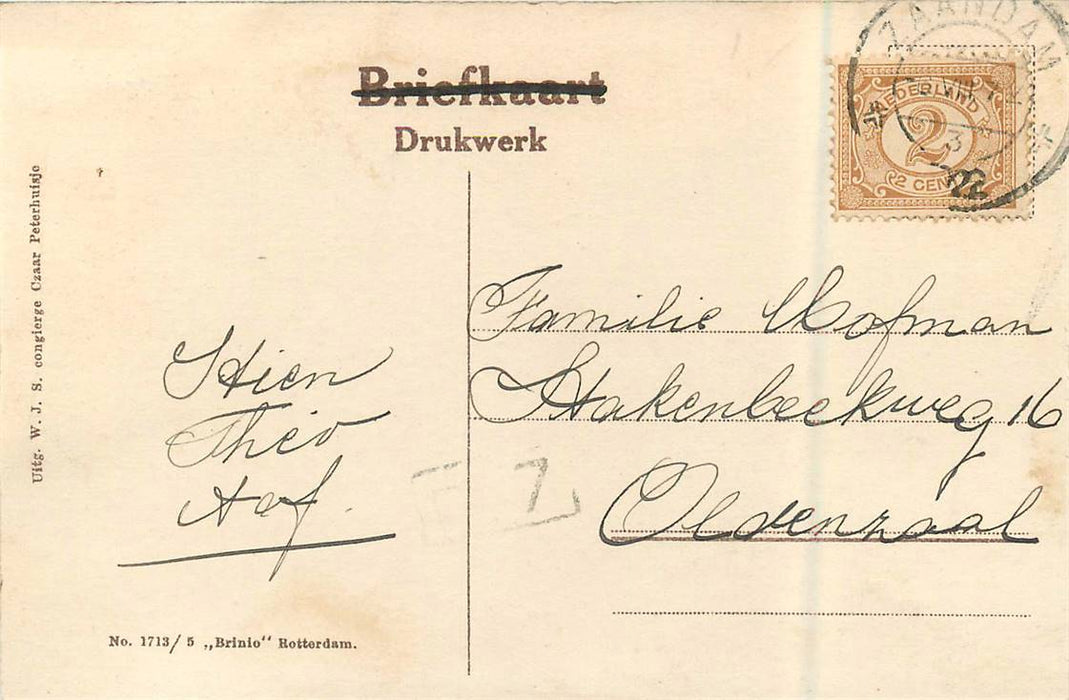 Briefkaart
Drukwerk
ZAANDAM
NEDERLAND
2
2 CENT
Uitg. W. J. S. congierge Czaar Peterhuisje
Familie Hofman
Stakenbeekweg 16
Oldenzaal
Stien
Theo
Aaf.
No. 1713/5 „Brinio“ Rotterdam.